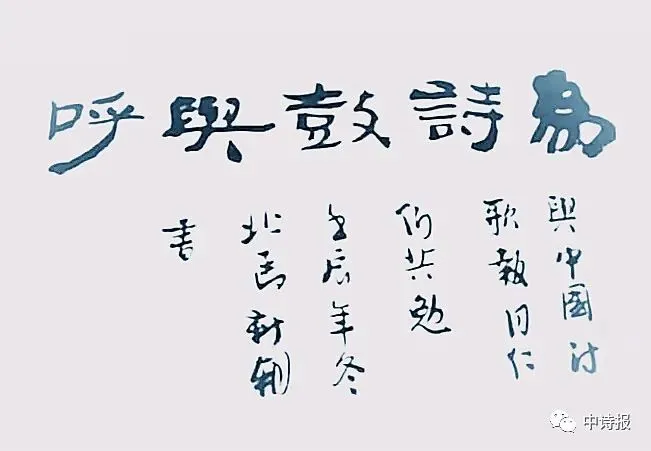 為詩鼓與呼
與中國诗
歌報同仁
们共勉
壬辰年冬
北馬新朝
書
中诗报